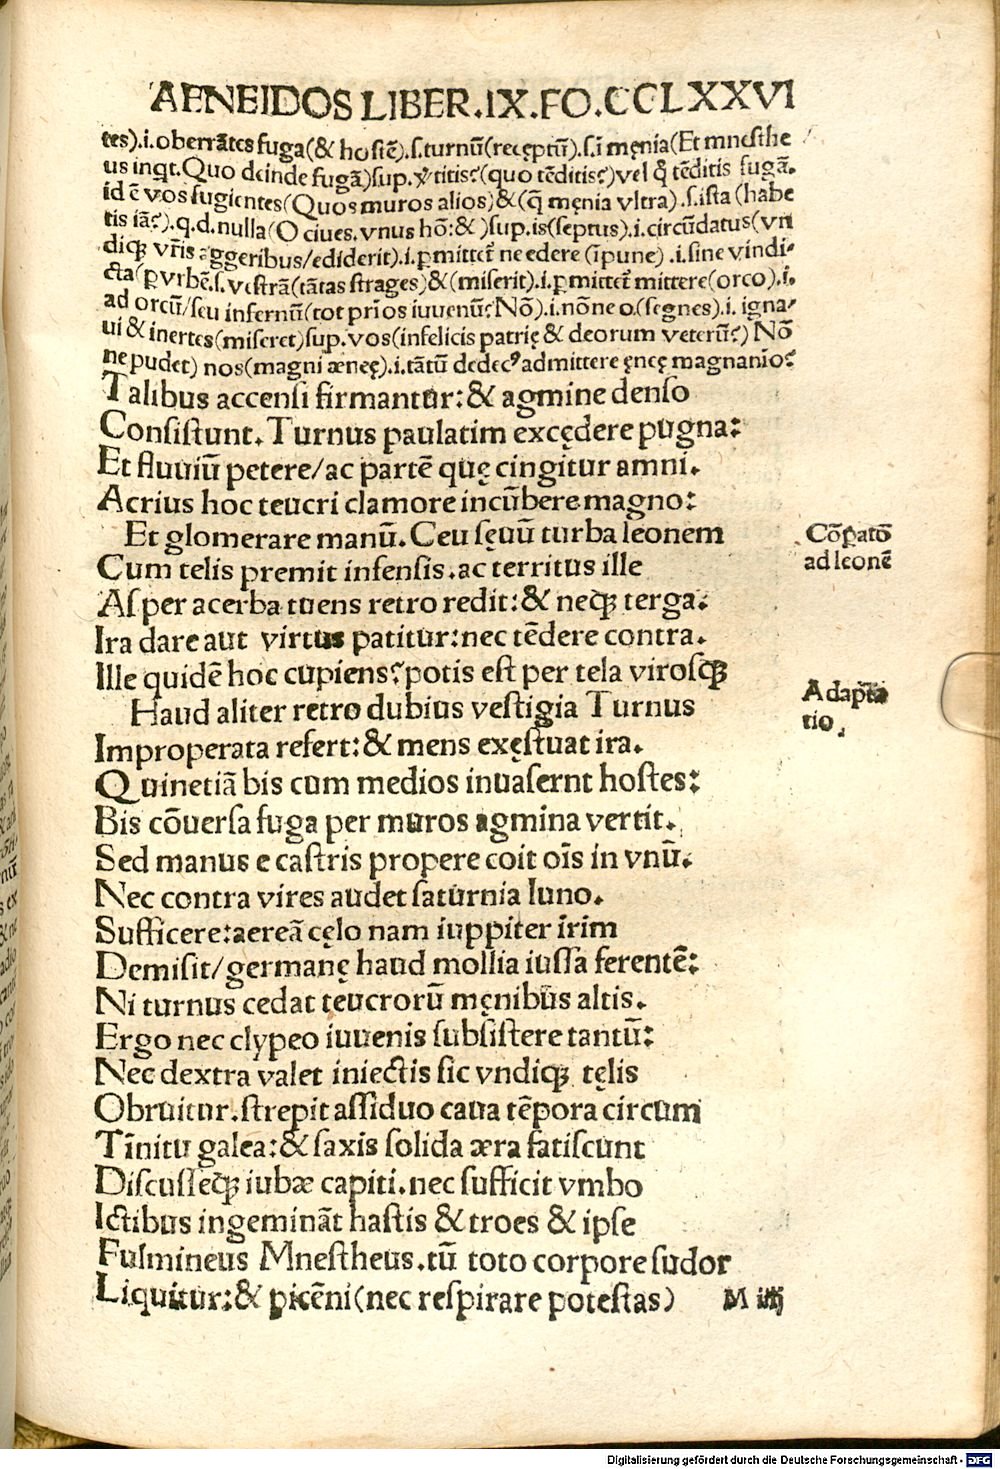 AENEIDOS LIBER.IX.FO.CCLXXVI
tes).i.oberrātes fuga(& hostē).s.turnū(receptū).s.ī męnia(Et mnesthe
us inqt.Quo deinde fugā)sup.ꝟtitis?(quo tēditis?)vel q̄ tēditis fugā.
id ē vos fugientes(Quos muros alios)&(q̄ męnia vltra).s.ista(habe
tis iā?).q.d.nulla(O ciues.vnus hō:&)sup.is(septus).i.circūdatus(vn
diqꝫ vr̄is aggeribus/ediderit).i.ꝑmittet̄ ne edere(īpune).i.sine vindi-
cta(ꝑ vrbē.s.vestrā(tātas strages)&(miserit).i.ꝑmittet̄ mittere(orco).i.
ad orcū/seu infernū(tot prios iuuenū?Nō).i.nōne o.(segnes).i.igna-
ui & inertes(miseret)sup.vos(infelicis patrię & deorum veterū?)Nō
ne pudet)nos(magni æneę).i.tātū dedecꝰ admittere ęneę magnanio?
Talibus accensi firmantur:& agmine denso
Consistunt.Turnus paulatim excędere pugna:
Et fluuiū petere/ac partē quę cingitur amni.
Acrius hoc teucri clamore incūbere magno:
Et glomerare manū.Ceu sęuū turba leonem
Cum telis premit infensis.ac territus ille
Asper acerba tuens retro redit:& neqꝫ terga.
Ira dare aut virtus patitur:nec tēdere contra.
Ille quidē hoc cupiens?potis est per tela virosqꝫ
Haud aliter retro dubius vestigia Turnus
Improperata refert:& mens exęstuat ira.
Quinetiā bis cum medios inuasernt hostes:
Bis cōuersa fuga per muros agmina vertit.
Sed manus e castris propere coit oīs in vnū.
Nec contra vires audet saturnia Iuno.
Sufficere:aereā cęlo nam iuppiter irim
Demisit/germanę haud mollia iussa ferentē:
Ni turnus cedat teucrorū męnibus altis.
Ergo nec clypeo iuuenis subsistere tantū:
Nec dextra valet iniectis sic vndiqꝫ tęlis
Obruitur.strepit assiduo caua tēpora circum
Tīnitu galea:& saxis solida æra fatiscunt
Discusseqꝫ iubæ capiti.nec sufficit vmbo
Ictibus ingemināt hastis & troes & ipse
Fulmineus Mnestheus.tū toto corpore sudor
Liquitur:& picēni(nec respirare potestas)
M iiij
Cōꝑatō
ad leonē
Adapta
tio.
Digitalisierung gefördert durch die Deutsche Forschungsgemeinschaft - DFG